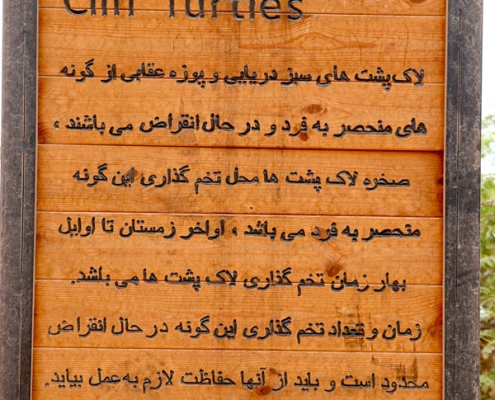 Cliff Turtles
لاک‌پشت های سبز دریایی و پوزه عقابی از گونه
های منحصر به فرد و در حال انقراض می باشند ،
صخره لاک پشت ها محل تخم گذاری این گونه
منحصر به فرد می باشد ، اواخر زمستان تا اوایل
بهار زمان تخم گذاری لاک پشت ها می باشد.
زمان و تعداد تخم گذاری این گونه در حال انقراض
محدود است و باید از آنها حفاظت لازم به‌عمل بیاید.